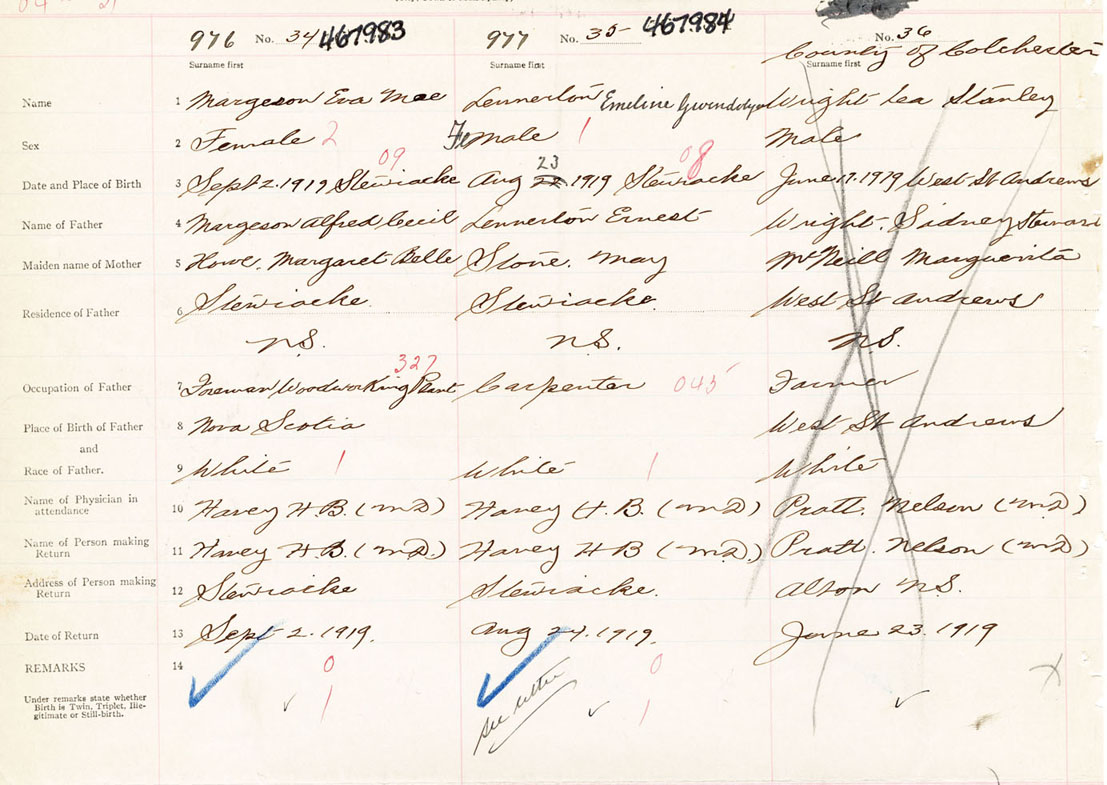 976 No. 34 467983 977 No. 35 467984 No. 36
County of Colchester
Surname first Surname first Surname first
Name 1 Margeson Eva Mae Lennerton Emeline Gwendolyn Wright Lea Stanley
Sex 2 Female 2 Female 1 Male
09 23 08
Date and Place of Birth 3 Sept 2. 1919 Stewiacke Aug 22 1919 Stewiacke June 17. 1919 West St Andrews
Name of Father 4 Margeson Alfred Cecil Lennerton Ernest Wright. Sidney Steward
Maiden name of Mother 5 Howe. Margaret Belle Stone. May McNeill Marguerita
Residence of Father 6 Stewiacke. Stewiacke. West St Andrews
N.S. N.S. N.S.
327
Occupation of Father 7 Foreman Woodworking Plant Carpenter 045 Farmer
Place of Birth of Father 8 Nova Scotia West St Andrews
and
Race of Father. 9 White 1 White 1 White
Name of Physician in attendance 10 Havey H.B. (MD) Havey H.B. (MD) Pratt. Nelson (MD)
Name of Person making Return 11 Havey H.B. (MD.) Havey H B (MD) Pratt. Nelson (MD)
Address of Person making Return 12 Stewiacke Stewiacke. Alton N.S.
Date of Return 13 Sept 2. 1919. Aug 24. 1919. June 23. 1919
REMARKS 14 0 0
Under remarks state whether Birth is Twin, Triplet, Ille-
gitimate or Still-birth. 1 see letter 1